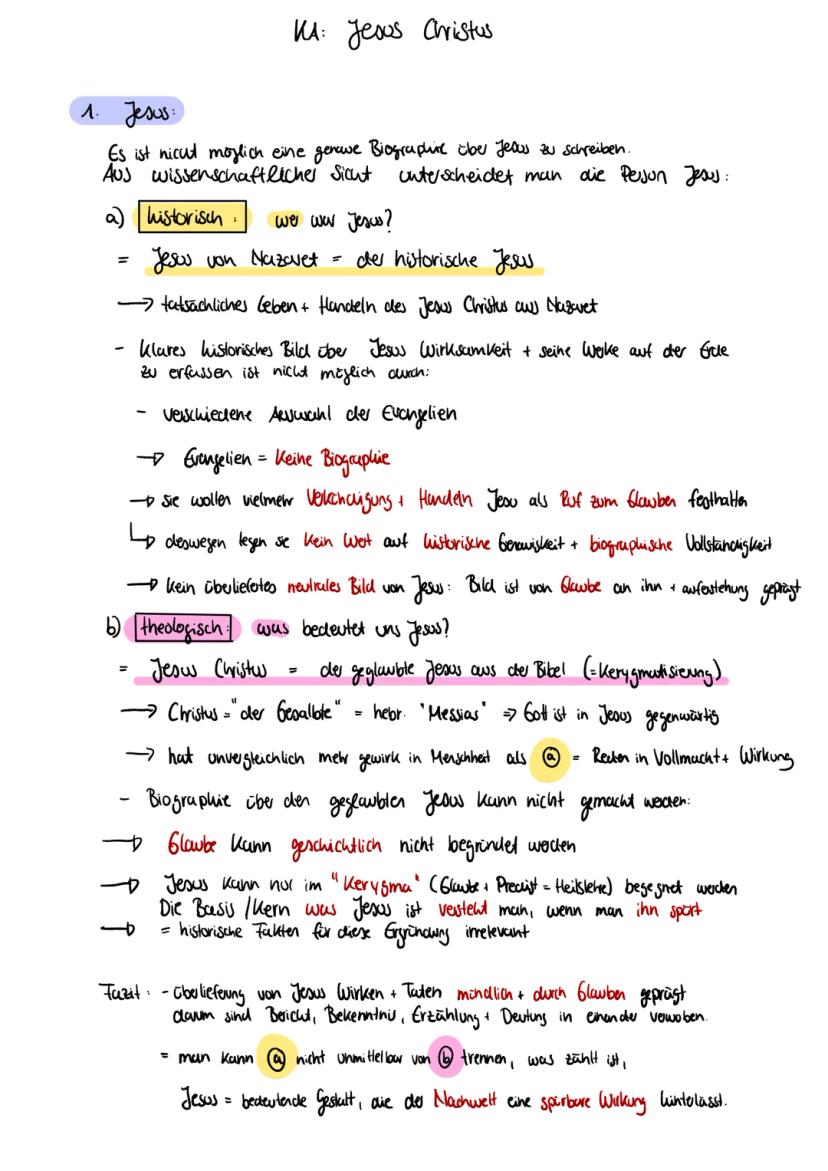 KA: Jesus Christus
1. Jesus:
Es ist nicht möglich eine genaue Biographie über Jesus zu schreiben.
Aus wissenschaftlicher Sicht unterscheidet man die Person Jesus:
a) historisch: wer war Jesus?
= Jesus von Nazaret = der historische Jesus
→ tatsächliches Leben + Handeln des Jesus Christus aus Nazaret
- klares historisches Bild über Jesus Wirksamkeit + seine Werke auf der Erde
zu erfassen ist nicht möglich durch:
- verschiedene Auswahl der Evangelien
→ Evangelien = keine Biographie
→ sie wollen vielmehr Verkündigung + Handeln Jesu als Ruf zum Glauben festhalten
↳ deswegen legen sie kein Wert auf historische Genauigkeit + biographische Vollständigkeit
→ kein überliefertes neutrales Bild von Jesus: Bild ist von Glaube an ihn + auferstehung geprägt
b) theologisch: was bedeutet uns Jesus?
= Jesus Christus = der geglaubte Jesus aus der Bibel (=Kerygmatisierung)
→ Christus = "der Gesalbte" = hebr. "Messias" ⇒ Gott ist in Jesus gegenwärtig
→ hat unvergleichlich mehr gewirk in Menschheit als ⓐ = Reden in Vollmacht + Wirkung
- Biographie über den geglaubten Jesus kann nicht gemacht werden:
→ Glaube kann geschichtlich nicht begründet werden
→ Jesus kann nur im "Kerygma" (Glaube + Predigt = Heilslehre) begegnet werden
Die Basis / Kern was Jesus ist versteht man, wenn man ihn spürt
→ = historische Fakten für diese Ergründung irrelevant
Fazit: - Überlieferung von Jesus Wirken + Taten mündlich + durch Glauben geprägt
darum sind Bericht, Bekenntnis, Erzählung + Deutung in einander verwoben.
= man kann ⓐ nicht unmittelbar von ⓑ trennen, was zählt ist,
Jesus = bedeutende Gestalt, die der Nachwelt eine spürbare Wirkung hinterlässt.